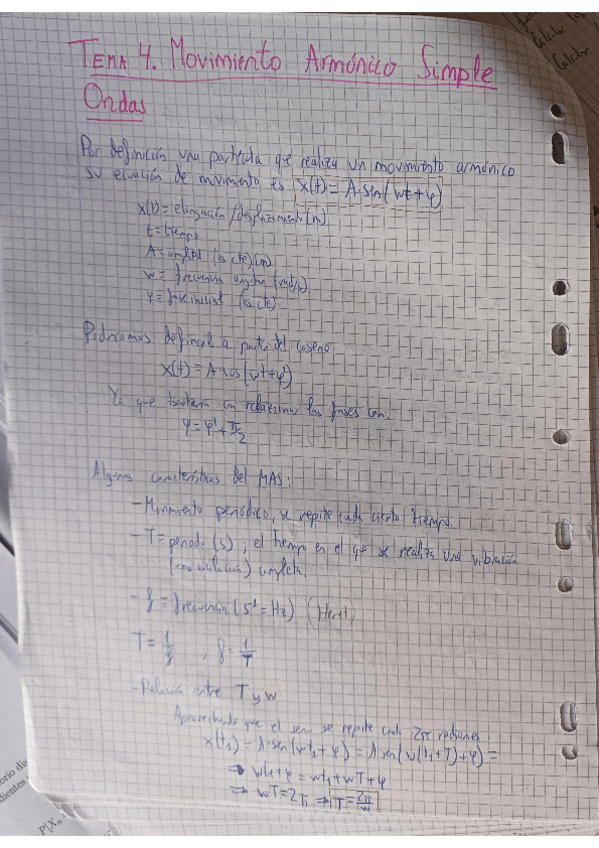 TEMA 4. Movimiento Armónico Simple
Ondas
Por definición una partícula que realiza un movimiento armónico
su ecuación de movimiento es x(t) = A·sen(wt+φ)
x(t) = elongación/desplazamiento (m)
t = tiempo
A = amplitud (es cte) (m)
w = frecuencia angular (rad/s)
φ = fase inicial (es cte)
Podríamos definirlo a partir del coseno
x(t) = A·cos(wt+φ')
Ya que bastaría con relacionar las fases con:
φ = φ' + π/2
Algunas características del MAS:
- Movimiento periódico, se repite cada cierto tiempo.
- T = periodo (s); el tiempo en el que se realiza una vibración
(una oscilación) completa.
- f = frecuencia (s⁻¹ = Hz) (Hertz)
T = 1/f , f = 1/T
- Relación entre T y w
Aprovechando que el seno se repite cada 2π radianes
x(t₁) = A·sen(wt₁+φ) = A sen(w(t₁+T)+φ) =
⇒ wt₁+φ = wt₁+wT+φ
⇒ wT = 2π ⇒ T = 2π/w
orio dis
dientes
P[X